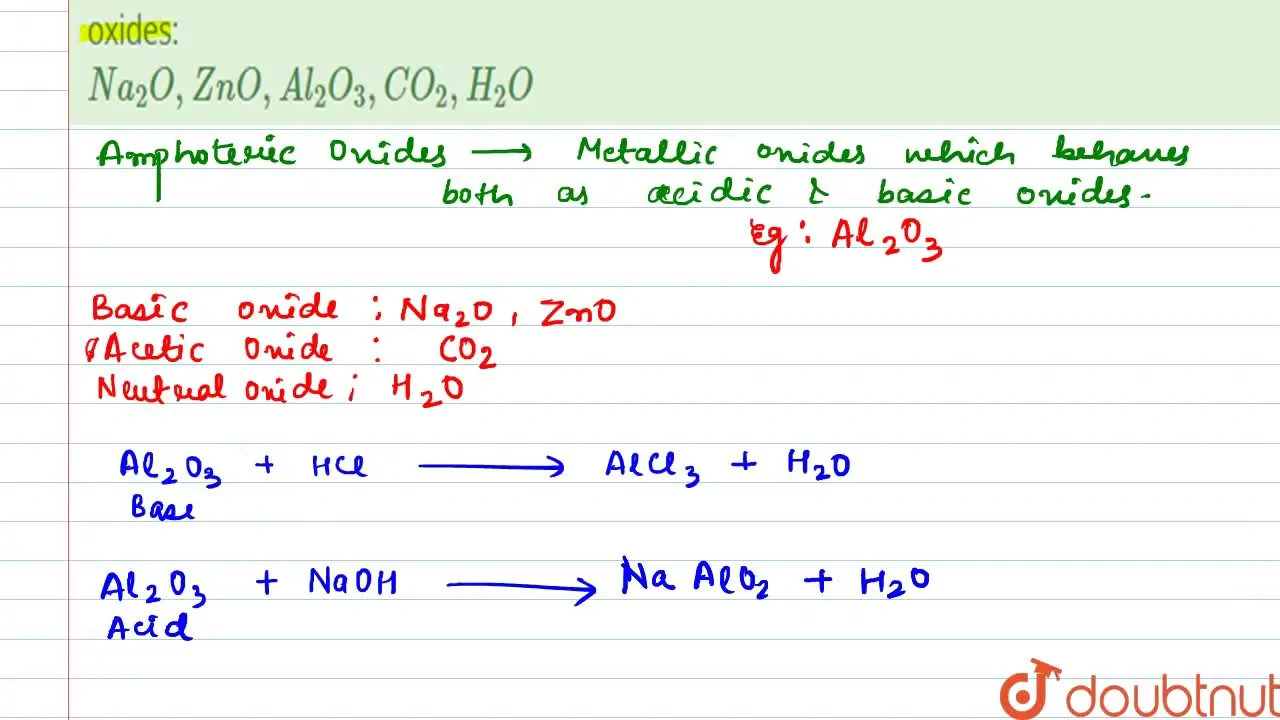 oxides:
Na₂O, ZnO, Al₂O₃, CO₂, H₂O
Amphoteric Oxides → Metallic oxides which behaves
both as acidic & basic oxides.
Eg : Al₂O₃
Basic oxide ; Na₂O, ZnO
Acetic Oxide : CO₂
Neutral oxide ; H₂O
Al₂O₃ + HCl → AlCl₃ + H₂O
Base
Al₂O₃ + NaOH → Na AlO₂ + H₂O
Acid
doubtnut